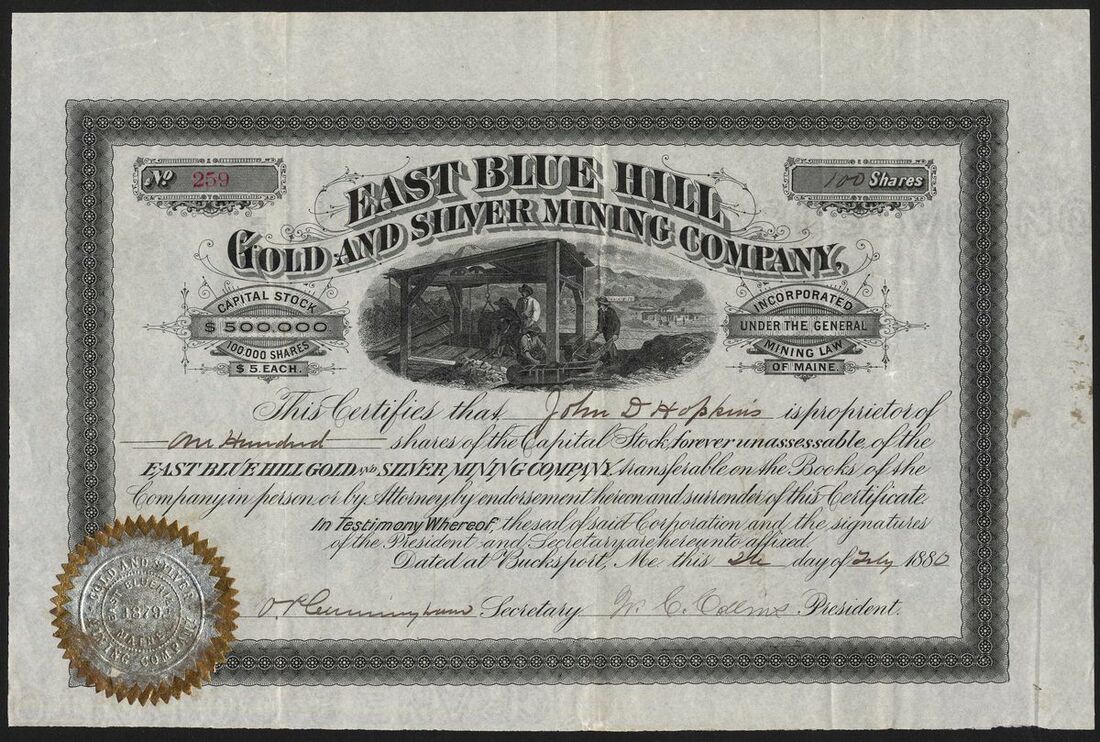 No 259
100 Shares
EAST BLUE HILL
GOLD AND SILVER MINING COMPANY,
CAPITAL STOCK
$ 500.000
100.000 SHARES
$ 5. EACH.
INCORPORATED
UNDER THE GENERAL
MINING LAW
OF MAINE.
This Certifies that John D Hopkins is proprietor of
One Hundred shares of the Capital Stock, forever unassessable, of the
EAST BLUE HILL GOLD AND SILVER MINING COMPANY, transferable on the Books of the
Company in person or by Attorney by endorsement hereon and surrender of this Certificate.
In Testimony Whereof, the seal of said Corporation and the signatures
of the President and Secretary are hereunto affixed.
Dated at Bucksport, Me. this day of July 1880
Cunningham Secretary President.
GOLD AND SILVER
MINING COMPANY
BLUE
1879
MAINE